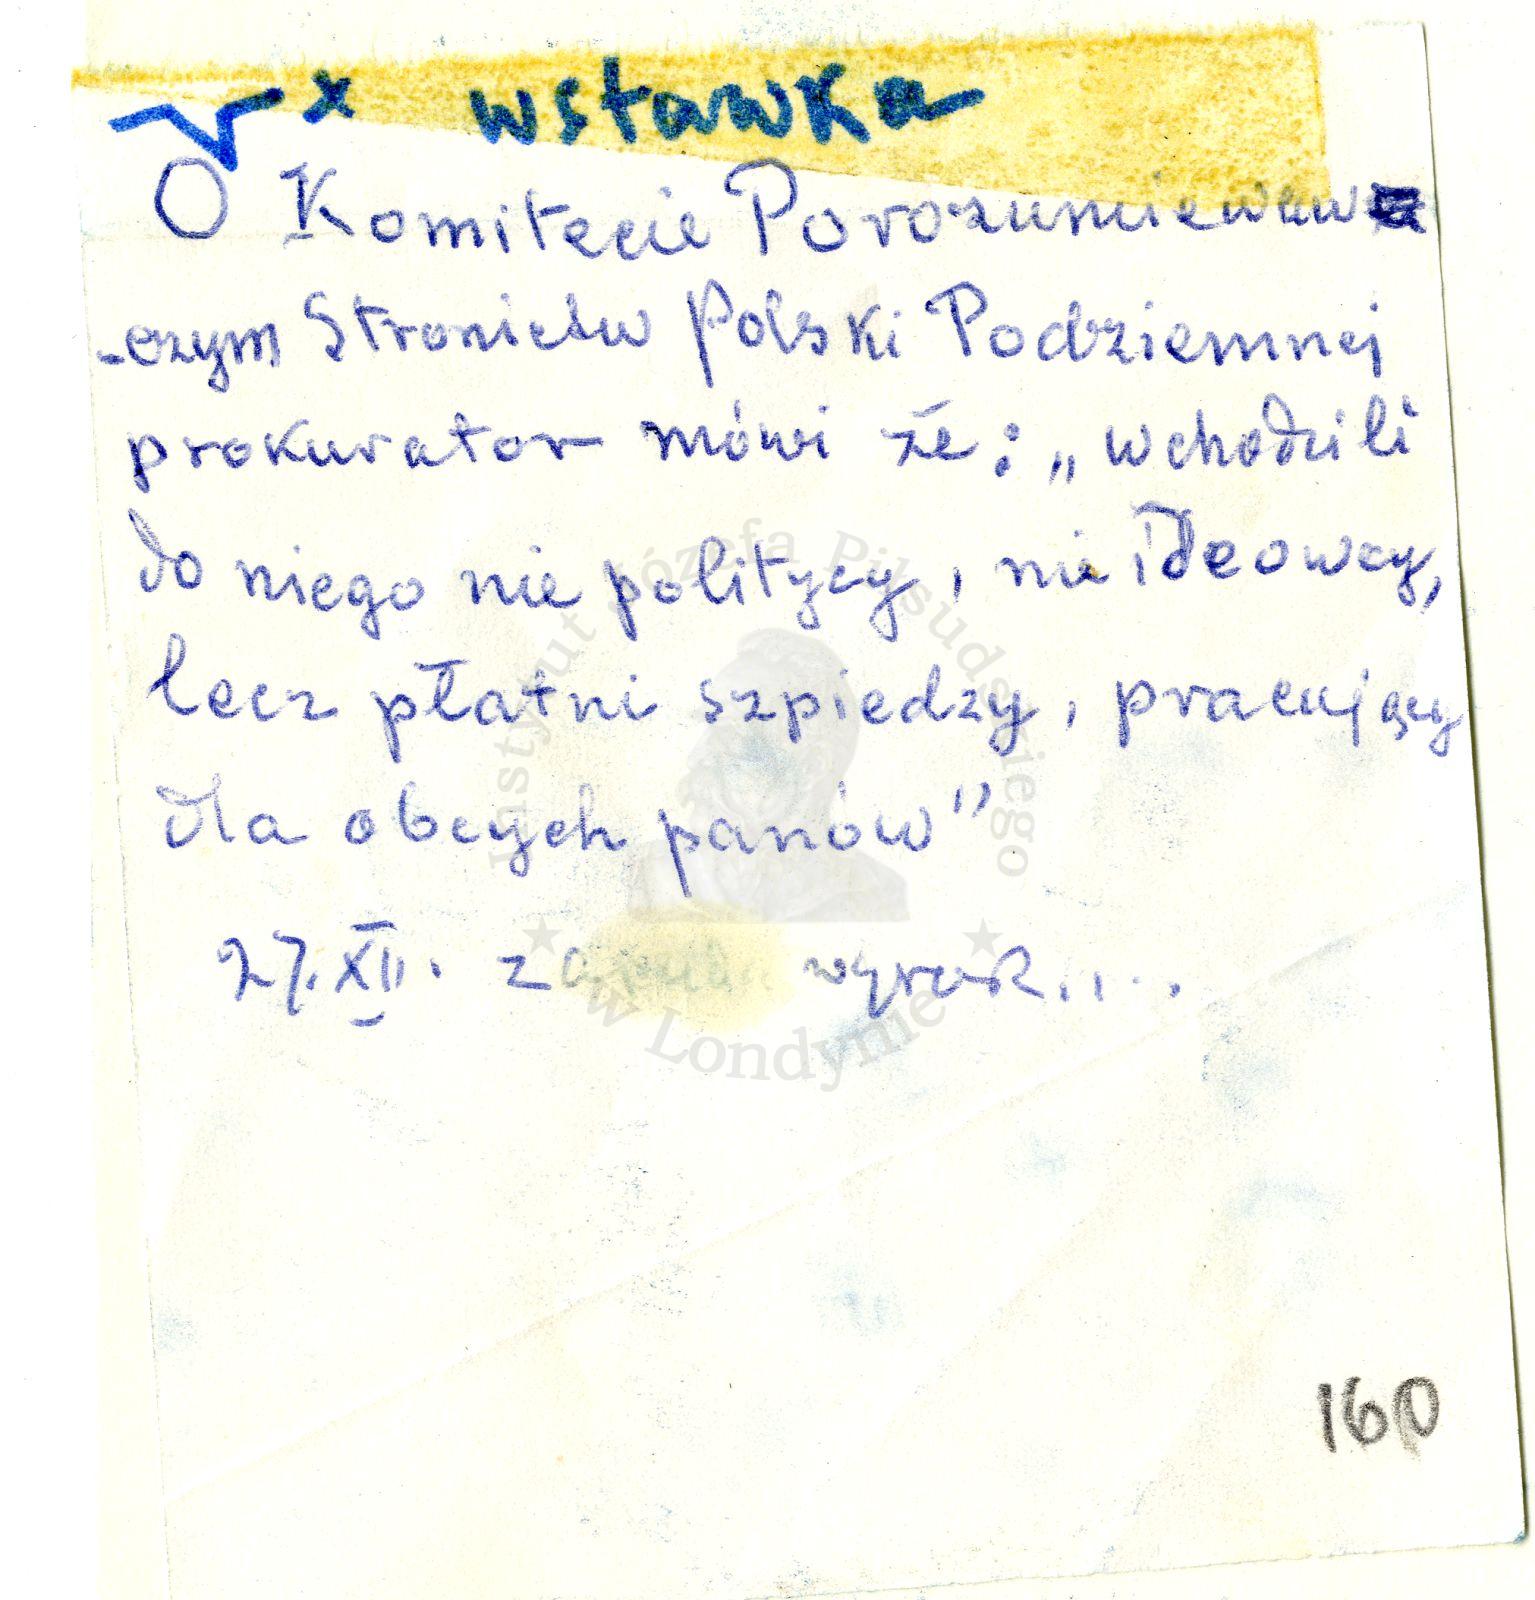 x wstawka
O Komitecie Porozumiewaw
-czym Stronictw Polski Podziemnej
prokurator mówi że: „wchodzili
do niego nie politycy, nie ideowcy,
lecz płatni szpiedzy, pracujący
dla obcych panów”
27.XII. wyrok.....
160
Instytut Józefa Piłsudskiego
w Londynie